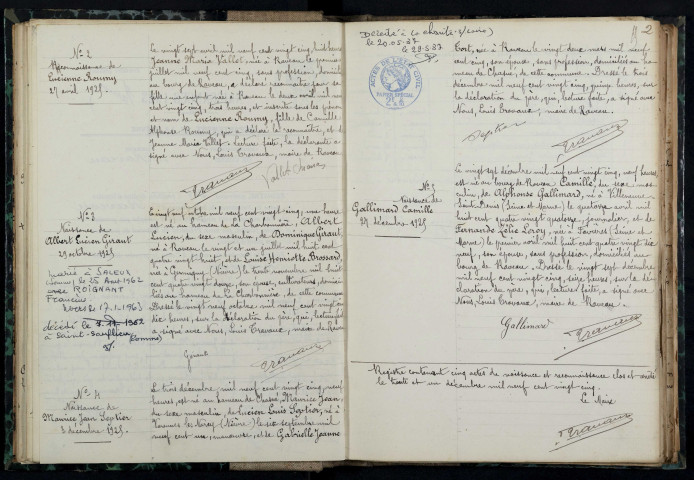 N° 2
Reconnaissance de
Lucienne Roumy
27 avril 1925.
Le vingt sept avril mil neuf cent vingt cinq, huit heures
Jeanne Maria Vallet, née à Raveau le premier
juillet mil neuf cent cinq, sans profession, domiciliée
au bourg de Raveau, a déclaré reconnaître pour sa
fille un enfant née à Raveau le deux avril mil neuf
cent vingt cinq, trois heures, et inscrite sous les prénom
et nom de Lucienne Roumy, fille de Camille
Alphonse Roumy, qui a déclaré la reconnaître, et de
Jeanne Maria Vallet. Lecture faite, la déclarante a
signé avec Nous, Louis Travaux, maire de Raveau.
Travaux
Vallet Jeanne
N° 3
Naissance de
Albert Lucien Giraut
29 octobre 1925
marié à SALEUX
(Somme) le 25 Août 1962
avec ROIGNANT
Francine
décédé le
à Saint-Sauflieu
(Somme)
Le vingt neuf octobre mil neuf cent vingt cinq, une heure
est né au hameau de la Charbonnière, Albert
Lucien, du sexe masculin, de Dominique Giraut,
né à Raveau le vingt et un juillet mil huit cent
quatre vingt huit, et de Louise Henriette Brossard,
née à (Nièvre) le trente novembre mil huit
cent quatre vingt douze, son épouse, cultivateurs, domiciliés
au hameau de la Charbonnière, de cette commune
Dressé le vingt neuf octobre mil neuf cent vingt cinq
dix heures, sur la déclaration du père, qui, lecture faite
a signé avec Nous, Louis Travaux, maire de Raveau
Giraut
Travaux
N° 4
Naissance de
Maurice Jean Septier
3 décembre 1925.
Le trois décembre mil neuf cent vingt cinq, neuf
heures, est né au hameau de Chasné, Maurice Jean,
du sexe masculin de Lucien Louis Septier, né à
Varennes les Narcy (Nièvre) le six septembre mil
neuf cent un, manœuvre, et de Gabrielle Jeanne
2
Décédé à La Charité s/Loire
le 20.05.87
le 29.5.87
ACTES DE L'ETAT CIVIL
PAPIER SPECIAL
née à Raveau le vingt deux mars mil neuf
cent cinq, son épouse, sans profession, domiciliés au
hameau de Chasné, de cette commune. Dressé le trois
décembre mil neuf cent vingt cinq, quinze heures, sur
la déclaration du père, qui, lecture faite, a signé avec
Nous, Louis Travaux, maire de Raveau.
Septier
Travaux
N° 5
Naissance de
Gallimard Camille
27 décembre 1925
Le vingt sept décembre mil neuf cent vingt cinq, neuf heures
est né au bourg de Raveau Camille, du sexe mas
culin, de Alphonse Gallimard, né à Villeneuve
Saint Denis (Seine et Marne) le quatorze avril mil
huit cent quatre vingt quatorze, journalier, et de
Fernande Zélie Leroy, née à Favières (Seine et
Marne) le premier avril mil huit cent quatre vingt dix
neuf, son épouse, sans profession, domiciliés au
bourg de Raveau. Dressé le vingt sept décembre
mil neuf cent vingt cinq, seize heures, sur la dé
claration du père, qui, lecture faite, a signé avec
Nous, Louis Travaux, maire de Raveau.
Gallimard
Travaux
Registre contenant cinq actes de naissance et reconnaissance clos et arrêté
le trente et un décembre mil neuf cent vingt cinq.
Le Maire
Travaux